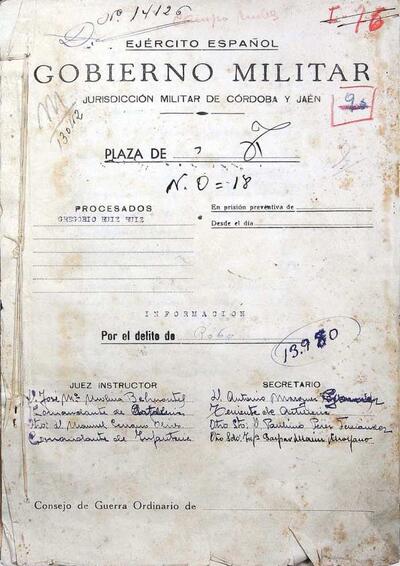 Nº 14126
I 16
EJÉRCITO ESPAÑOL
GOBIERNO MILITAR
JURISDICCIÓN MILITAR DE CÓRDOBA Y JAÉN
13012
PLAZA DE
N. O = 18
PROCESADOS
GREGORIO RUIZ RUIZ
En prisión preventiva de
Desde el día
INFORMACION
Por el delito de Robo
13.980
JUEZ INSTRUCTOR
D. José Mª Molina Belmonte
Comandante de Artillería
Otro: D. Manuel
Comandante de Infantería
SECRETARIO
D. Antonio Marquez
Teniente de Artillería
Otro Sto. D. Paulino Perez Fernández
Otro Sdo. Gaspar
Consejo de Guerra Ordinario de